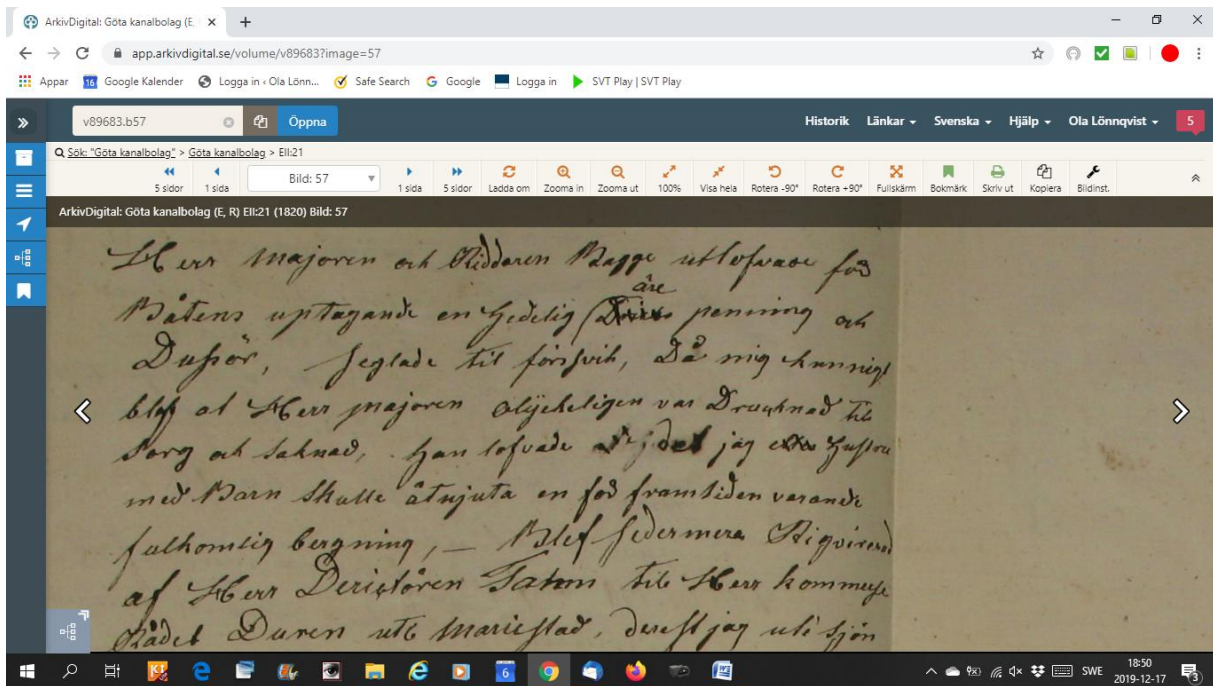 ArkivDigital: Göta kanalbolag (E,
app.arkivdigital.se/volume/v89683?image=57
Appar 16 Google Kalender Logga in ‹ Ola Lönn... Safe Search Google Logga in SVT Play | SVT Play
v89683.b57 Öppna Historik Länkar Svenska Hjälp Ola Lönnqvist 5
Sök: "Göta kanalbolag" > Göta kanalbolag > EII:21
Bild: 57
5 sidor 1 sida 1 sida 5 sidor Ladda om Zooma in Zooma ut 100% Visa hela Rotera -90° Rotera +90° Fullskärm Bokmärk Skriv ut Kopiera Bildinst.
ArkivDigital: Göta kanalbolag (E, R) EII:21 (1820) Bild: 57
Herr Majoren och Riddaren Bagge utlofvade för
äre
Båtens uptagande en hedelig penning och
Dusör, seglade til forsvik, Då mig kunnigt
blef at Herr Majoren olyckeligen var Drucknad til
Sorg och saknad, han lofvade jag Hustru
med Barn skulle åtnjuta en för framtiden varande
fulkomlig bergning, — Blef sedermera Riqvirerad
af Herr Direktören til Herr Kommerse
Rådet Duren uti Mariestad, derest jag uti Sjön
18:50
SWE
2019-12-17
3